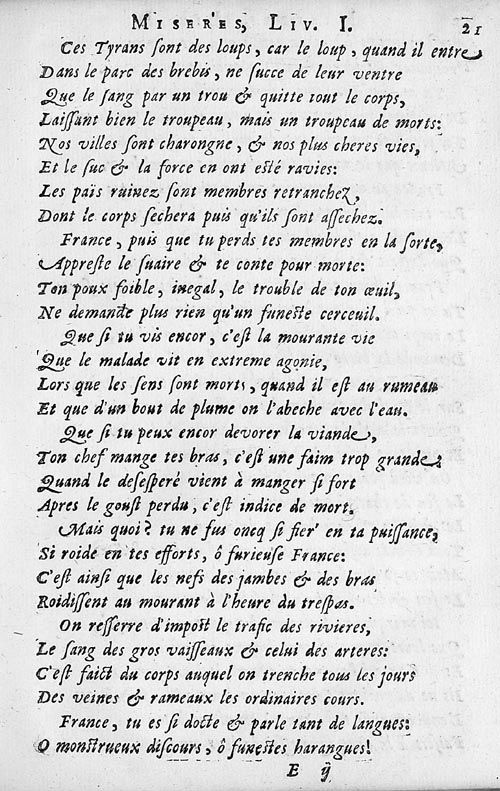 MISERES, LIV. I. 21
Ces Tyrans ſont des loups, car le loup, quand il entre
Dans le parc des brebis, ne ſucce de leur ventre
Que le ſang par un trou & quitte tout le corps,
Laiſſant bien le troupeau, mais un troupeau de morts:
Nos villes ſont charongne, & nos plus cheres vies,
Et le ſuc & la force en ont eſté ravies:
Les païs ruinez ſont membres retranchez,
Dont le corps ſechera puis qu'ils ſont aſſechez.
France, puis que tu perds tes membres en la ſorte,
Appreſte le ſuaire & te conte pour morte:
Ton poux foible, inegal, le trouble de ton œuil,
Ne demande plus rien qu'un funeſte cerceuil.
Que ſi tu vis encor, c'eſt la mourante vie
Que le malade vit en extreme agonie,
Lors que les ſens ſont morts, quand il eſt au rumeau
Et que d'un bout de plume on l'abeche avec l'eau.
Que ſi tu peux encor devorer la viande,
Ton chef mange tes bras, c'eſt une faim trop grande:
Quand le deſeſperé vient à manger ſi fort
Apres le gouſt perdu, c'eſt indice de mort.
Mais quoi? tu ne fus oncq ſi fier' en ta puiſſance,
Si roide en tes efforts, ô furieuſe France:
C'eſt ainſi que les nefs des jambes & des bras
Roidiſſent au mourant à l'heure du treſpas.
On reſſerre d'impoſt le trafic des rivieres,
Le ſang des gros vaiſſeaux & celui des arteres:
C'eſt faict du corps auquel on trenche tous les jours
Des veines & rameaux les ordinaires cours.
France, tu es ſi docte & parle tant de langues:
O monſtrueux diſcours, ô funeſtes harangues!
E ij